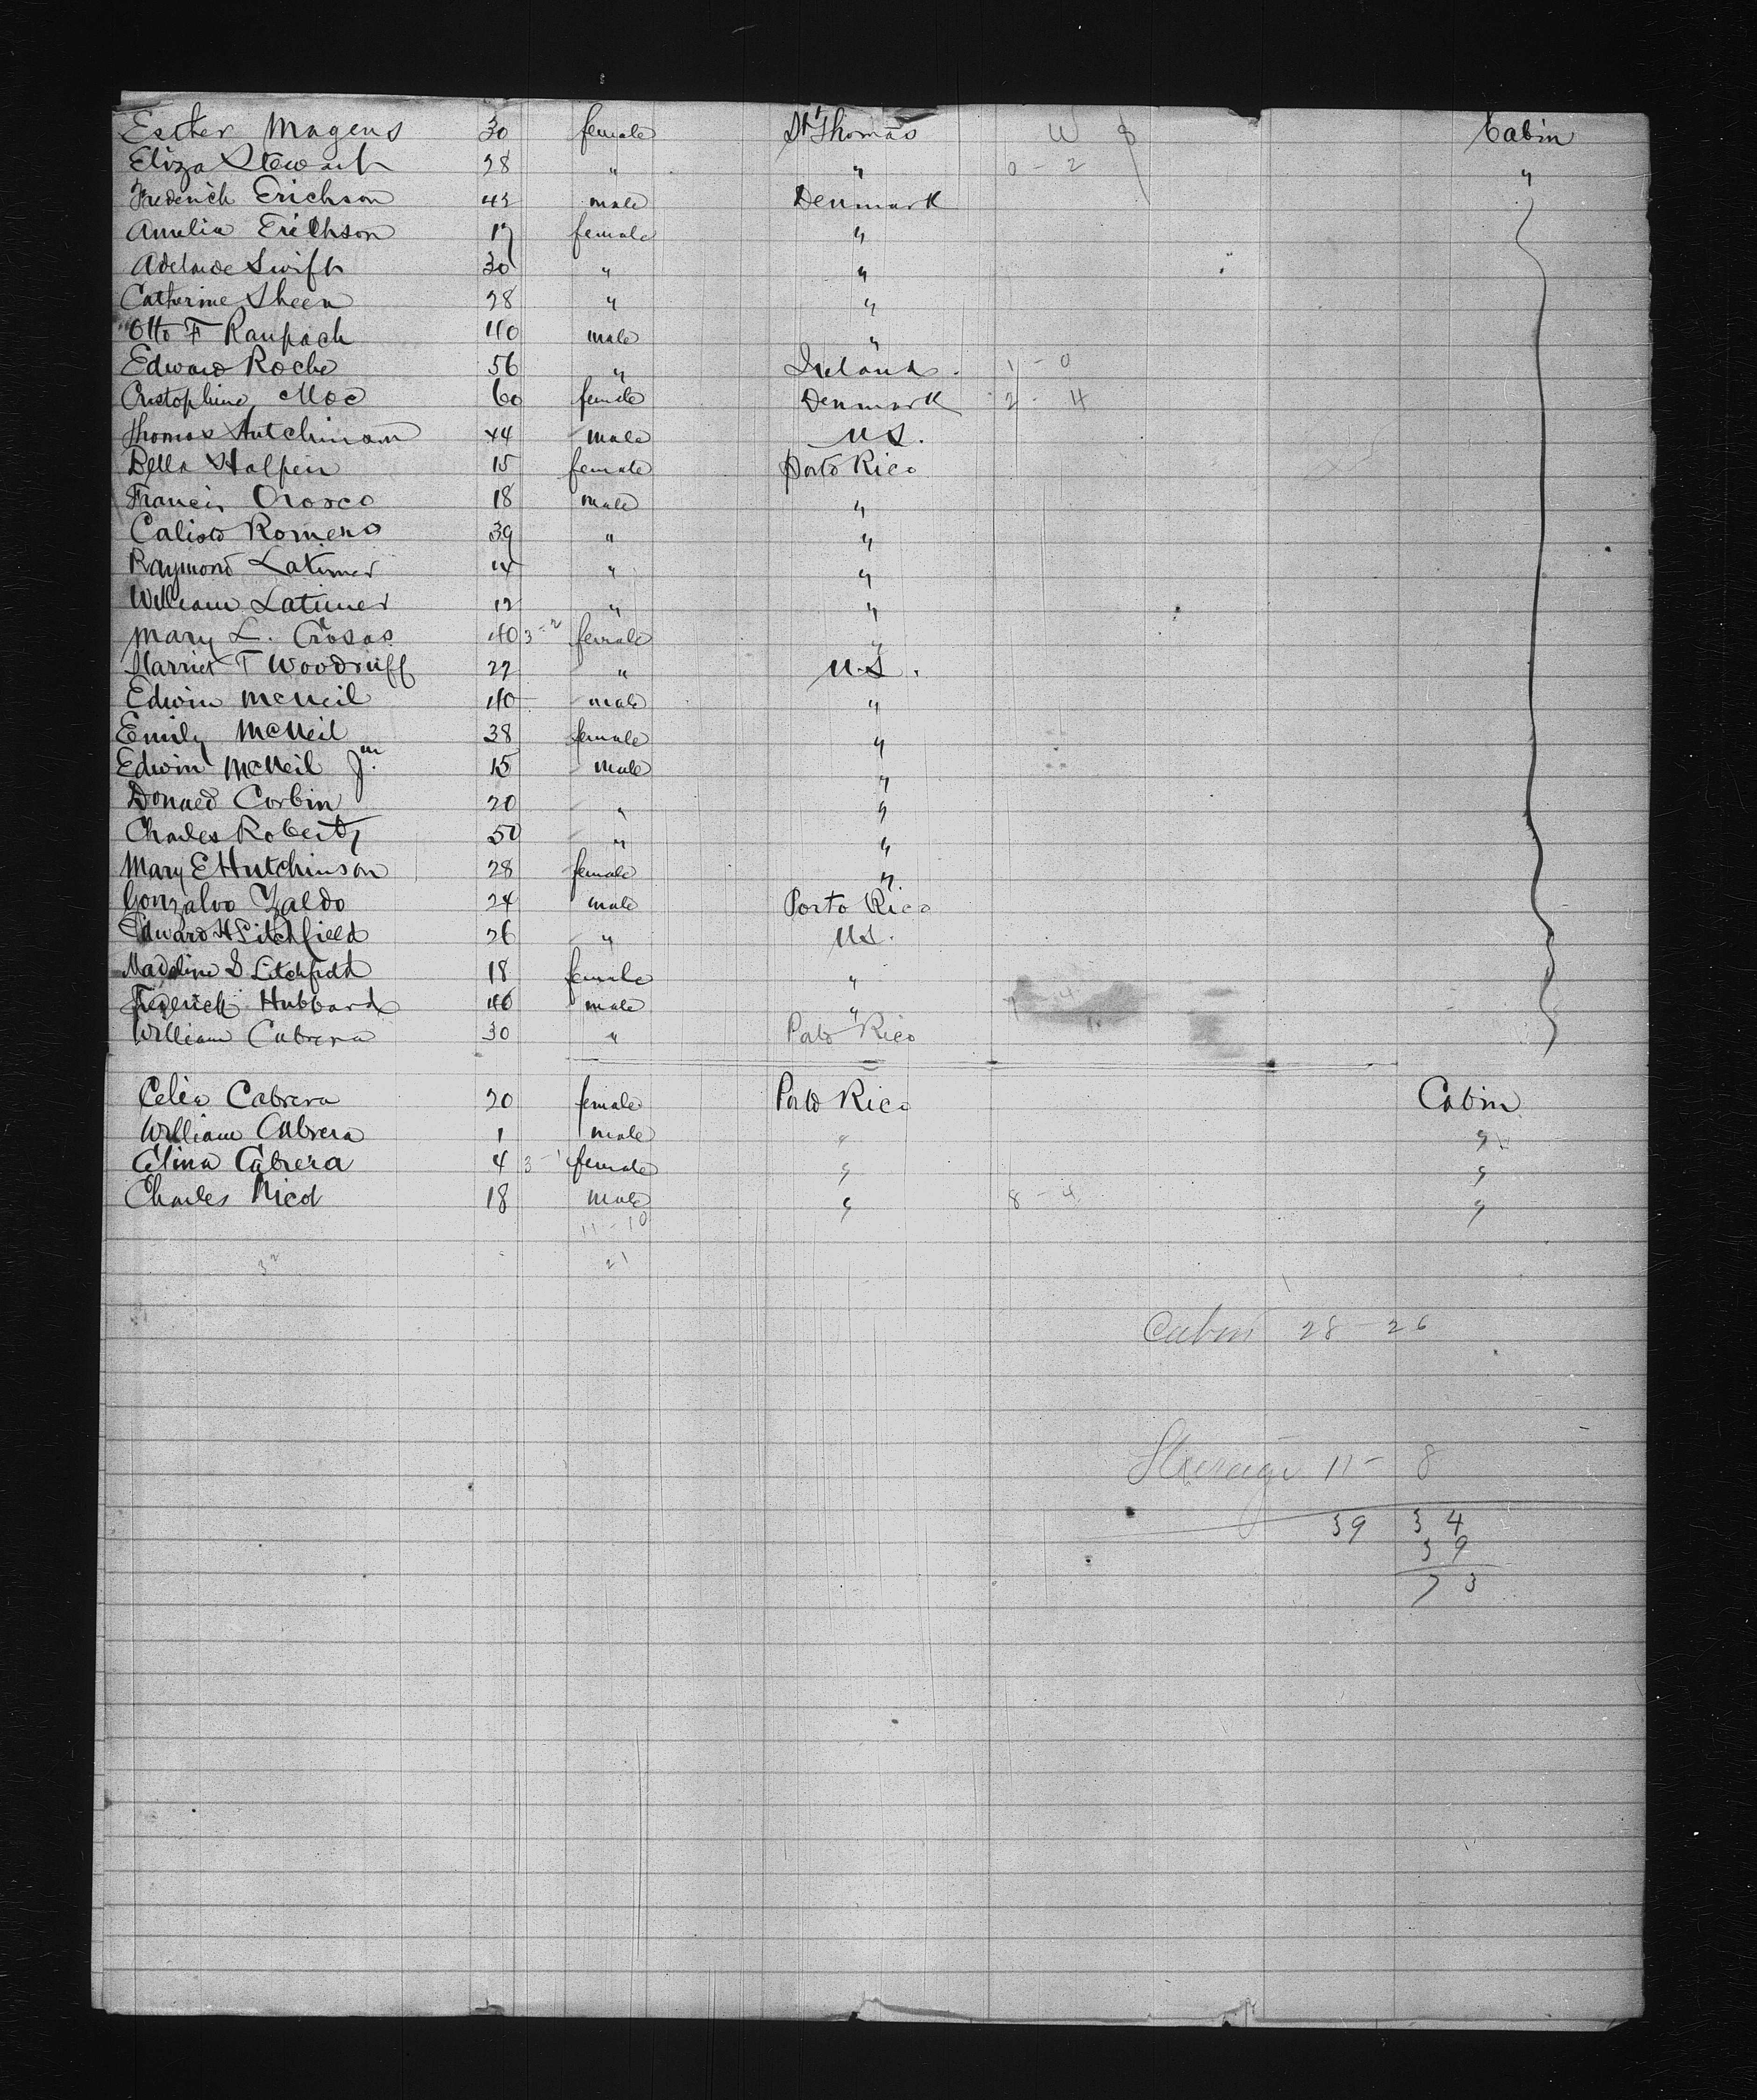 Esther Magens 30 female St Thomas W Cabin
Eliza Stewart 28 " " 0 - 2 "
Frederich Erichson 43 male Denmark
Amelia Erichson 17 female "
Adelaide Swift 30 " "
Catherine Sheen 28 " "
Otto F Raupach 40 male "
Edward Roche 56 " Ireland. 1 - 0
Cristophine Moe 60 female Denmark 2 - 4
Thomas Hutchinson 44 male U.S.
Bella Halpin 15 female Porto Rico
Francis Orosco 18 male "
Calisto Romero 39 " "
Raymond Latimer 14 " "
William Latimer 12 " "
Mary L. Crosas 40 3 - 2 female "
Harriet T Woodruff 22 " U.S.
Edwin McNeil 40 male "
Emily McNeil 38 female "
Edwin McNeil Jnr 15 male "
Corbin 20 " "
Charles Roberts 50 " "
Mary E Hutchinson 28 female "
Gonzalvo Zaldo 24 male Porto Rico
Edward H Litchfield 26 " U.S.
Madeline S Litchfield 18 female "
Frederick Hubbard 40 male "
William Cabrera 30 " Porto Rico
Celia Cabrera 20 female Porto Rico Cabin
William Cabrera 1 male " "
Elina Cabrera 4 3 - 1 female " "
Charles Nicol 18 male " 8 - 4 "
11 - 10
32 21
Cabin 28 - 26
Steerage 11 - 8
39 34
39
73